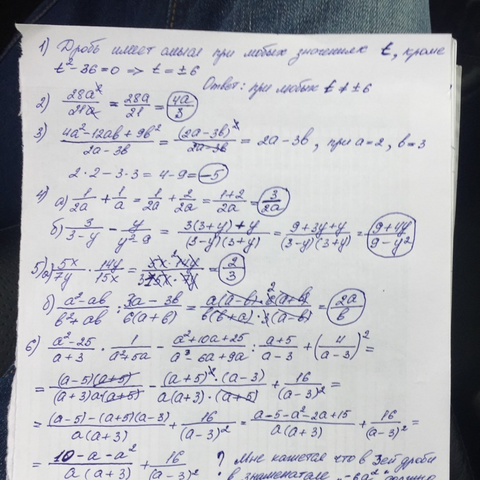 1) Дробь имеет смысл при любых значениях t, кроме
t² - 36 = 0 => t = ±6
Ответ: при любых t ≠ ±6
2) 28a²/21a = 28a/21 = 4a/3
3) (4a² - 12ab + 9b²)/(2a - 3b) = (2a - 3b)²/(2a - 3b) = 2a - 3b, при a = 2, b = 3
2·2 - 3·3 = 4 - 9 = -5
4) а) 1/2a + 1/a = 1/2a + 2/2a = (1+2)/2a = 3/2a
б) 3/(3-y) - y/(y²-9) = (3(3+y)+y)/((3-y)(3+y)) = (9+3y+y)/((3-y)(3+y)) = (9+4y)/(9-y²)
5) а) 5x/7y · 14y/15x = = 2/3
б) (a²-ab)/(b²+ab) : (3a-3b)/(6(a+b)) = (a(a-b)·6(a+b))/(b(b+a)·3(a-b)) = 2a/b
6) (a²-25)/(a+3) · 1/(a²+5a) - (a²+10a+25)/(a³-6a+9a) : (a+5)/(a-3) + (4/(a-3))² =
= ((a-5)(a+5))/((a+3)a(a+5)) - ((a+5)²·(a-3))/(a(a+3)·(a+5)) + 16/(a-3)² =
= ((a-5)-(a+5)(a-3))/(a(a+3)) + 16/(a-3)² = (a-5-a²-2a+15)/(a(a+3)) + 16/(a-3)² =
= (10-a-a²)/(a(a+3)) + 16/(a-3)² ? Мне кажется что в 3ей дроби
в знаменателе -6a²